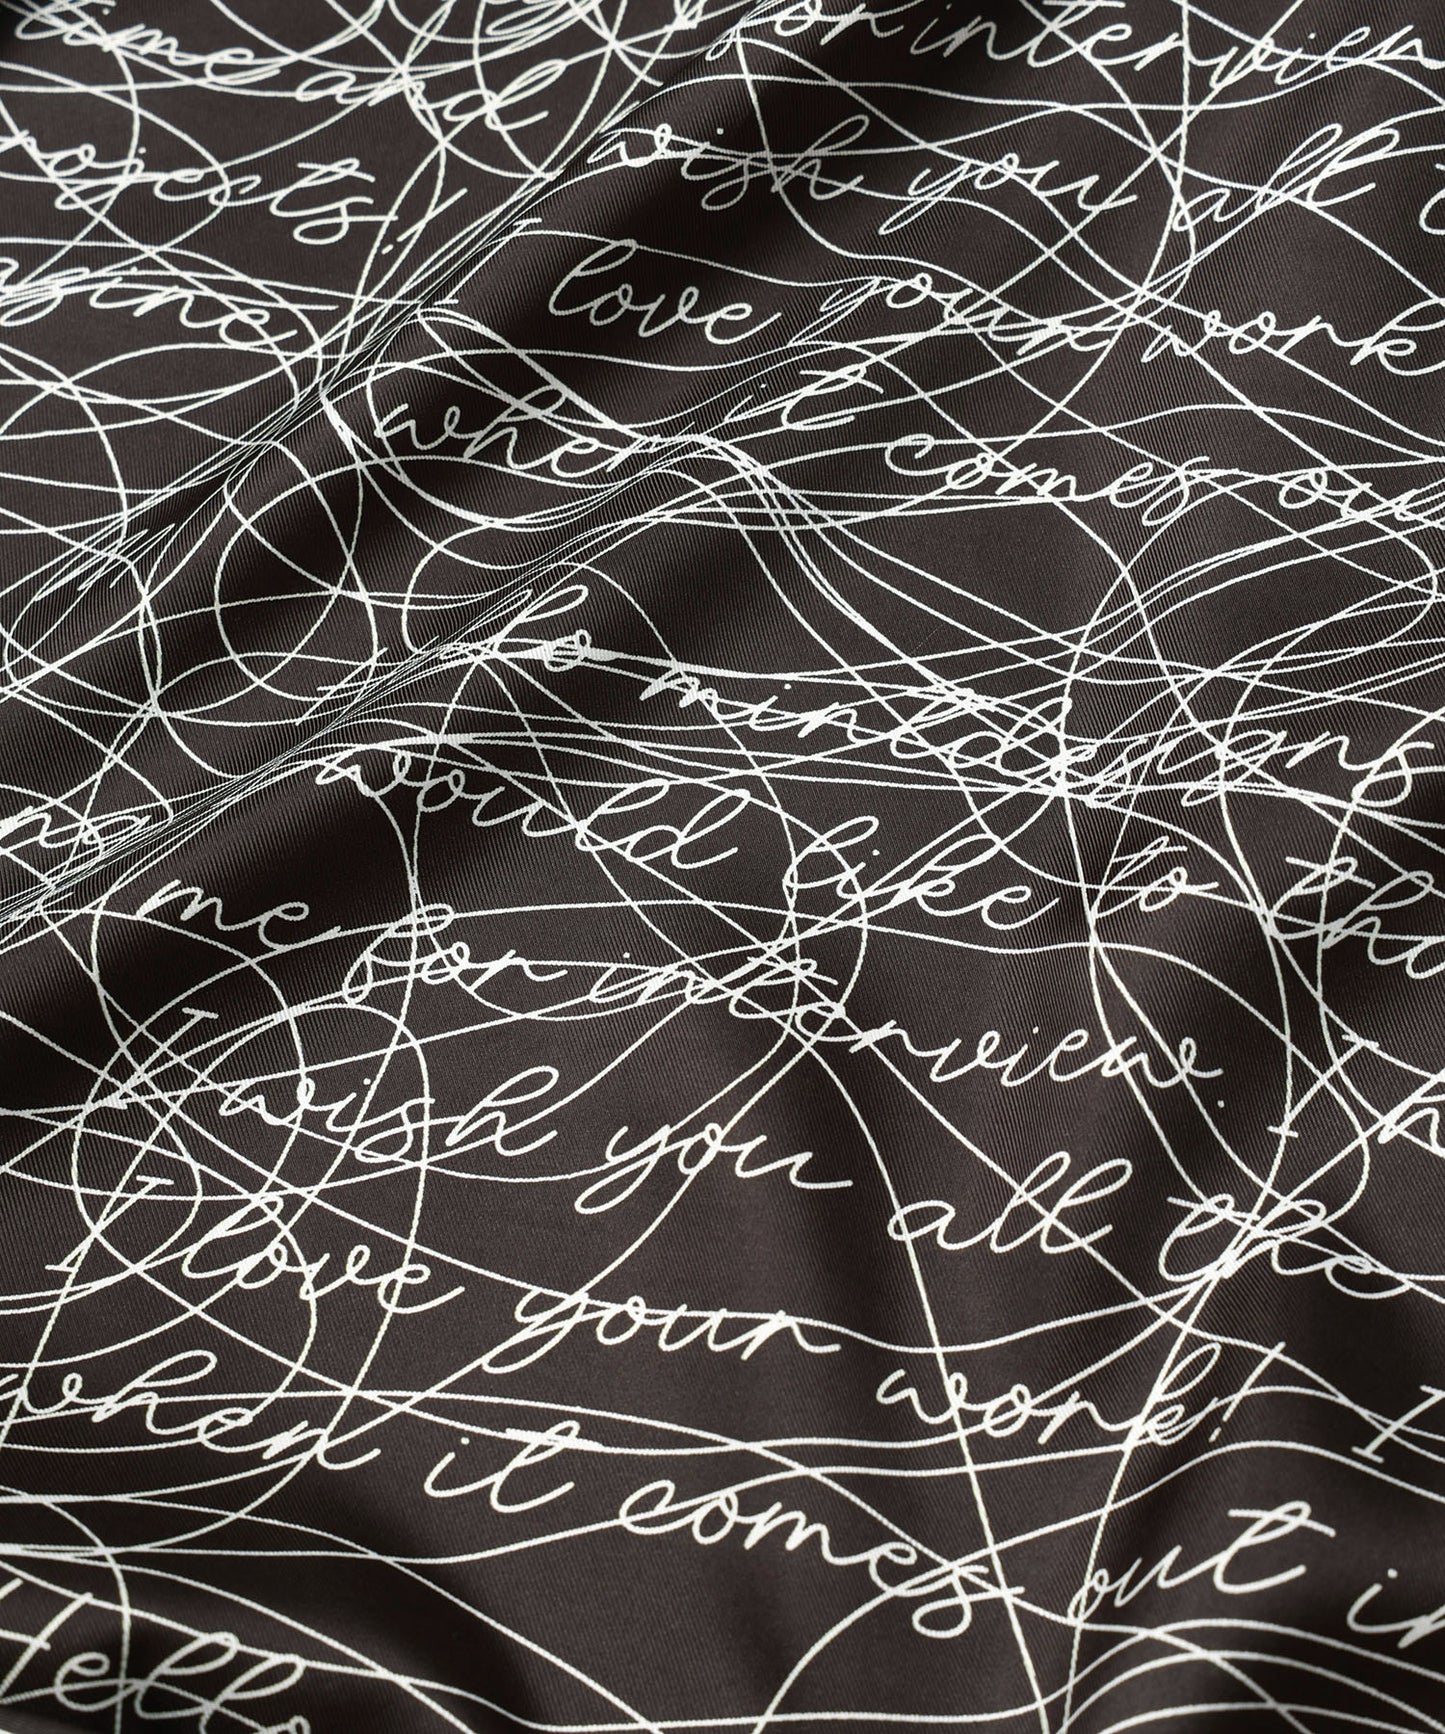 time and
for interview
projects!
wish you all
love your work
when it comes out
to mintdesigns
would like to
me for interview.
I wish you all the
I love your work! I
when it comes out in
Hello